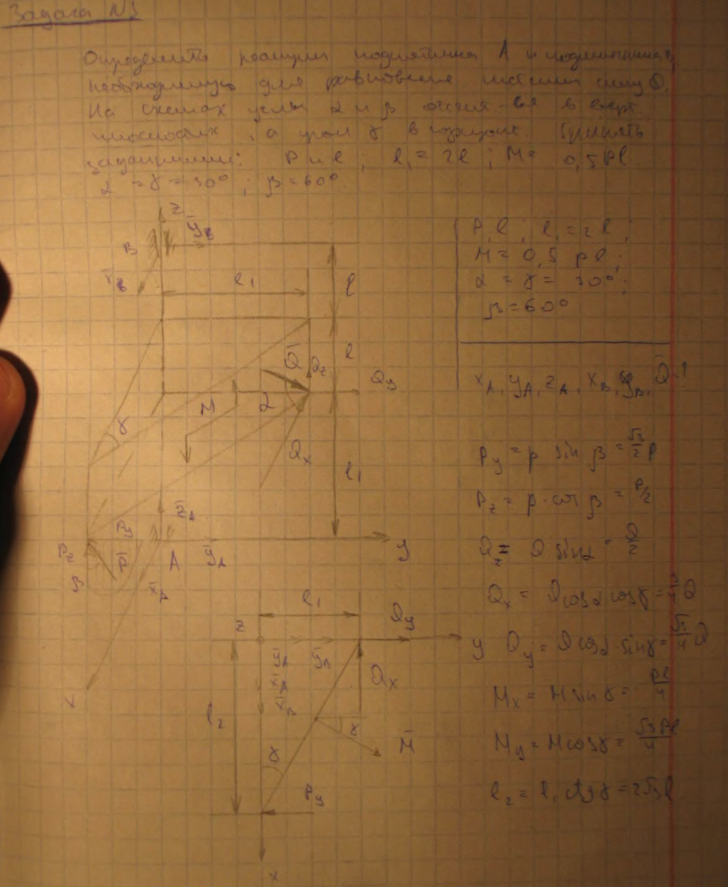 Задача N3
Определить реакции подпятника A и подшипника B,
необходимую для равновесия системы силу Q.
На схемах углы α и β в верт.
плоскостях, а угол γ в горизонт. Принять
заданными: P и l; l₁ = 2l; M = 0,5Pl
α = γ = 30°; β = 60°.
P, l; l₁ = 2l;
M = 0,5 Pl;
α = γ = 30°;
β = 60°
X_A, Y_A, Z_A, X_B, Y_B, Q̄ - ?
P_y = P sin β = √3/2 P
P_z = P · cos β = P/2
Q_z = Q sin α = Q/2
Q_x = Q cos α cos γ = 3/4 Q
Q_y = Q cos α · sin γ = √3/4 Q
M_x = M sin γ = Pl/4
M_y = M cos γ = √3Pl/4
l₂ = l₁ ctg γ = 2√3l
z
ȳ_B
B
x̄_B
l₁
l
l
Q̄
Q_z
Q_y
M
α
γ
Q_x
l₁
z̄_A
P_y
P_z
P̄
β
A
ȳ_A
y
x̄_A
x
l₁
Q_y
z
y
ȳ_A
x̄_A
x̄_B
Q_x
l₂
γ
M̄
γ
P_y
x